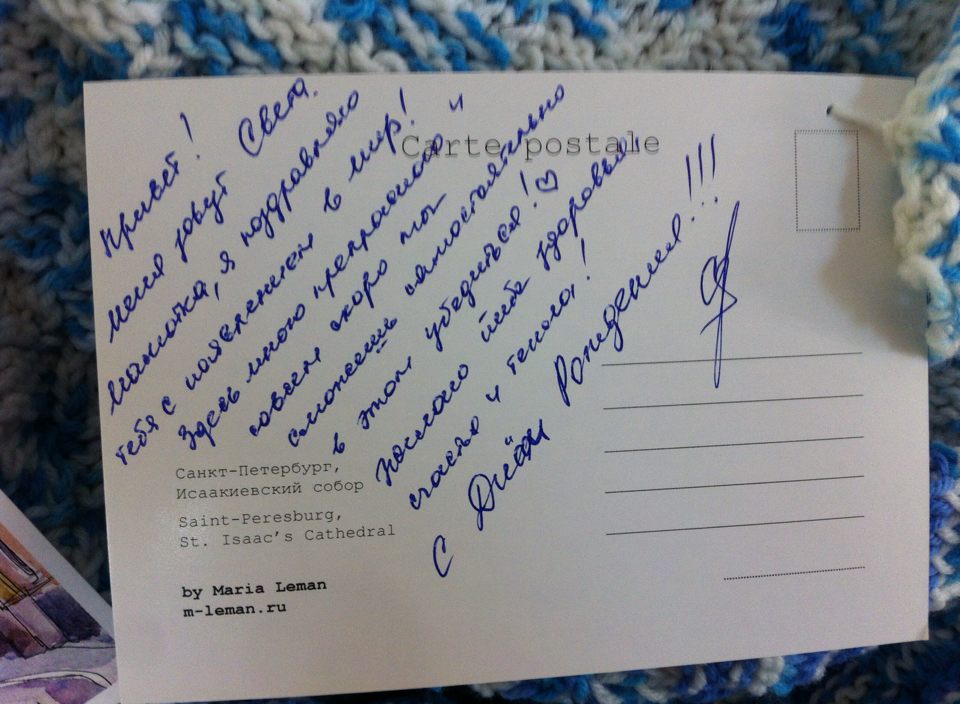 Привет!
меня зовут Света.
малютка, я поздравляю
тебя с появлением в мир!
Здесь много прекрасного и
совсем скоро ты
сможешь самостоятельно
в этом убедиться! ♡
тебе здоровья,
счастья и тепла!
С Днём Рождения!!!
Carte postale
Санкт-Петербург,
Исаакиевский собор
Saint-Peresburg,
St. Isaac's Cathedral
by Maria Leman
m-leman.ru